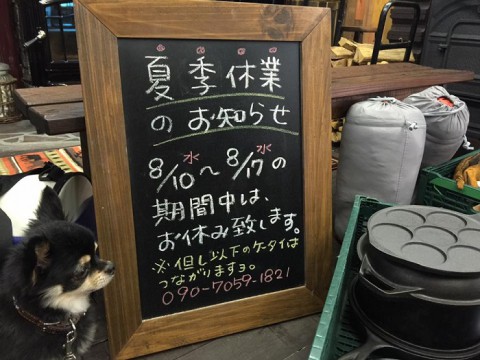 夏季休業
のお知らせ
水 水
8/10〜8/17の
期間中は、
お休み致します。
※但し以下のケータイは
つながりますョ。
090-7059-1821